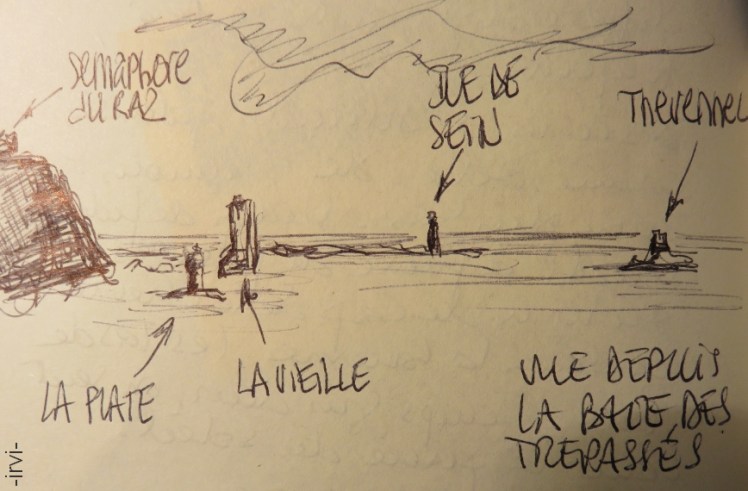 Semaphore
du RAZ
ILE DE
SEIN
Thevennec
LA PLATE
LA VIEILLE
VUE DEPUIS
LA BAIE DES
TREPASSÉS
-irvi-